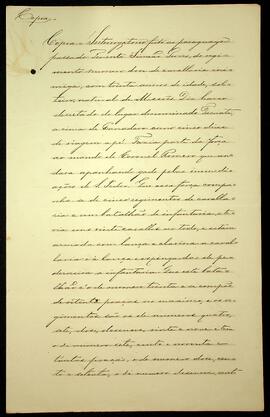 Copia
Copia = Interrogatorio feito ao paraguayo
passado Tenente Simão Soares, do regi-
mento numero dois de cavallaria ini-
miga, com trinta annos de idade, sol-
teiro, natural de Missões. Diz haver
desertado do lugar denominado
a cima de com cinco dias
de viagem a pé. Fazia parte da força
ao mando do Coronel Romero que an-
dava apanhando gado pelas immedia-
ções de S. Pedro. Tem essa força compa-
nhia de cinco regimentos de cavalla-
ria e um batalhão de infantaria, e ha-
via uns vinte cavallos ao todo, e estão
armada com lança e clavina a cavalla-
ria e a espingardas de pe-
derneira a infantaria. Que este bata-
lhão é o de numero trinta e a compõe
de oitenta praças no maximo, e os re-
gimentos são os de numeros quatro,
sete, doze, dezenove, vinte e nove e tem
o de numero sete, cento e noventa e
tantas praças, o de numero doze, cen-
to e setenta, o de numero dezenove, cento